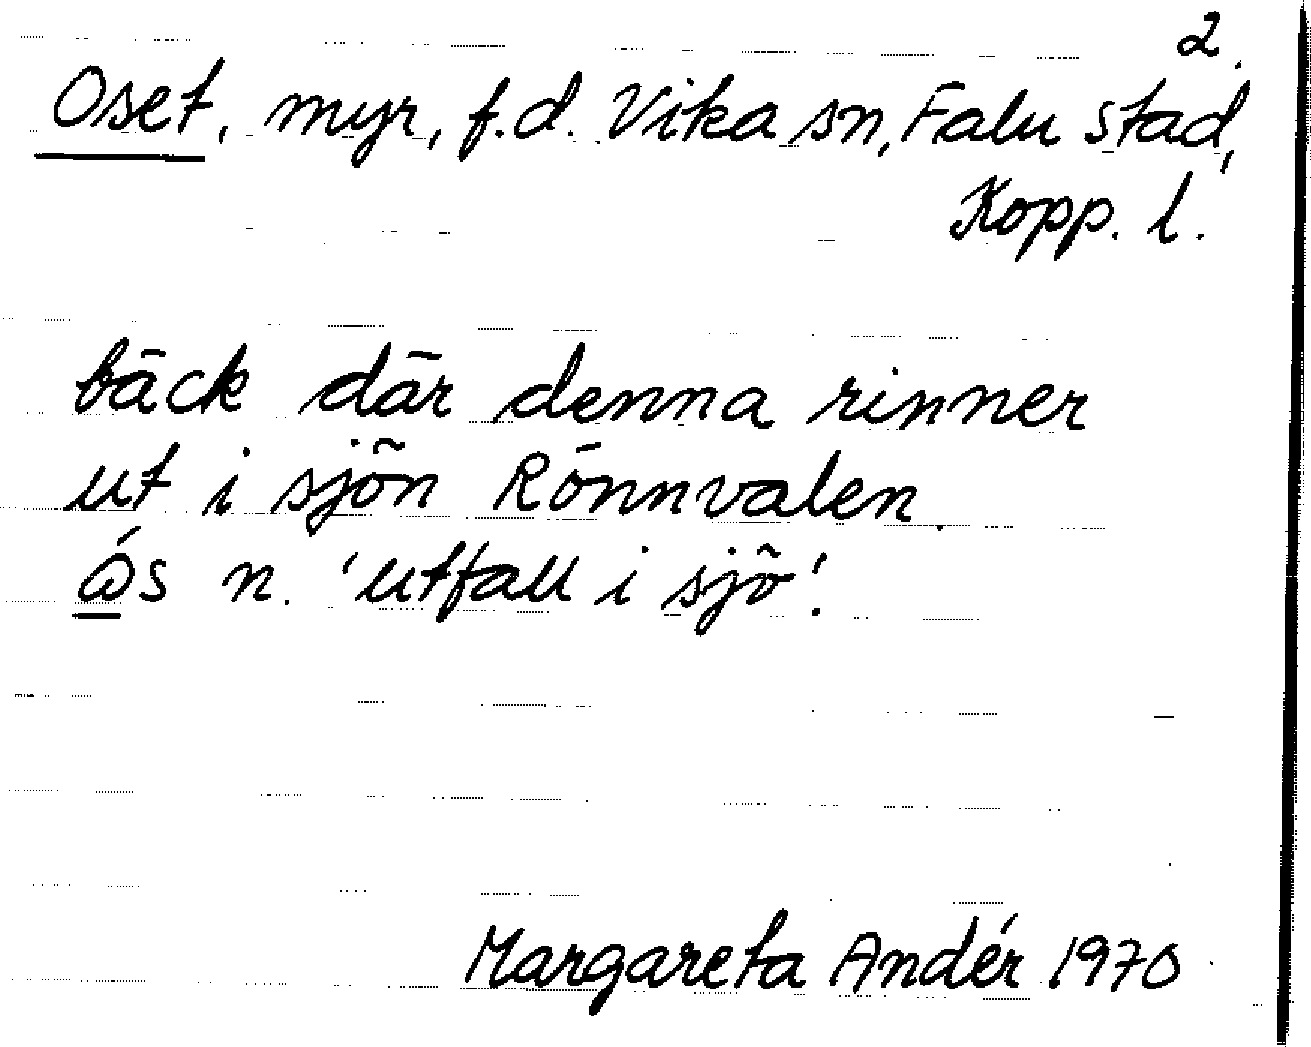 2.
Oset, myr, f.d. Vika sn, Falu stad,
Kopp. l.
bäck där denna rinner
ut i sjön Rönnvalen.
ós n. 'utfall i sjö'.
Margareta Andér 1970